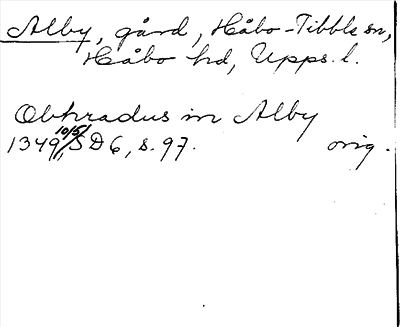 Alby, gård, Håbo-Tibble sn,
Håbo hd, Upps. l.
Obhradus in Alby
1349 10/5, SD 6, s. 97. orig.